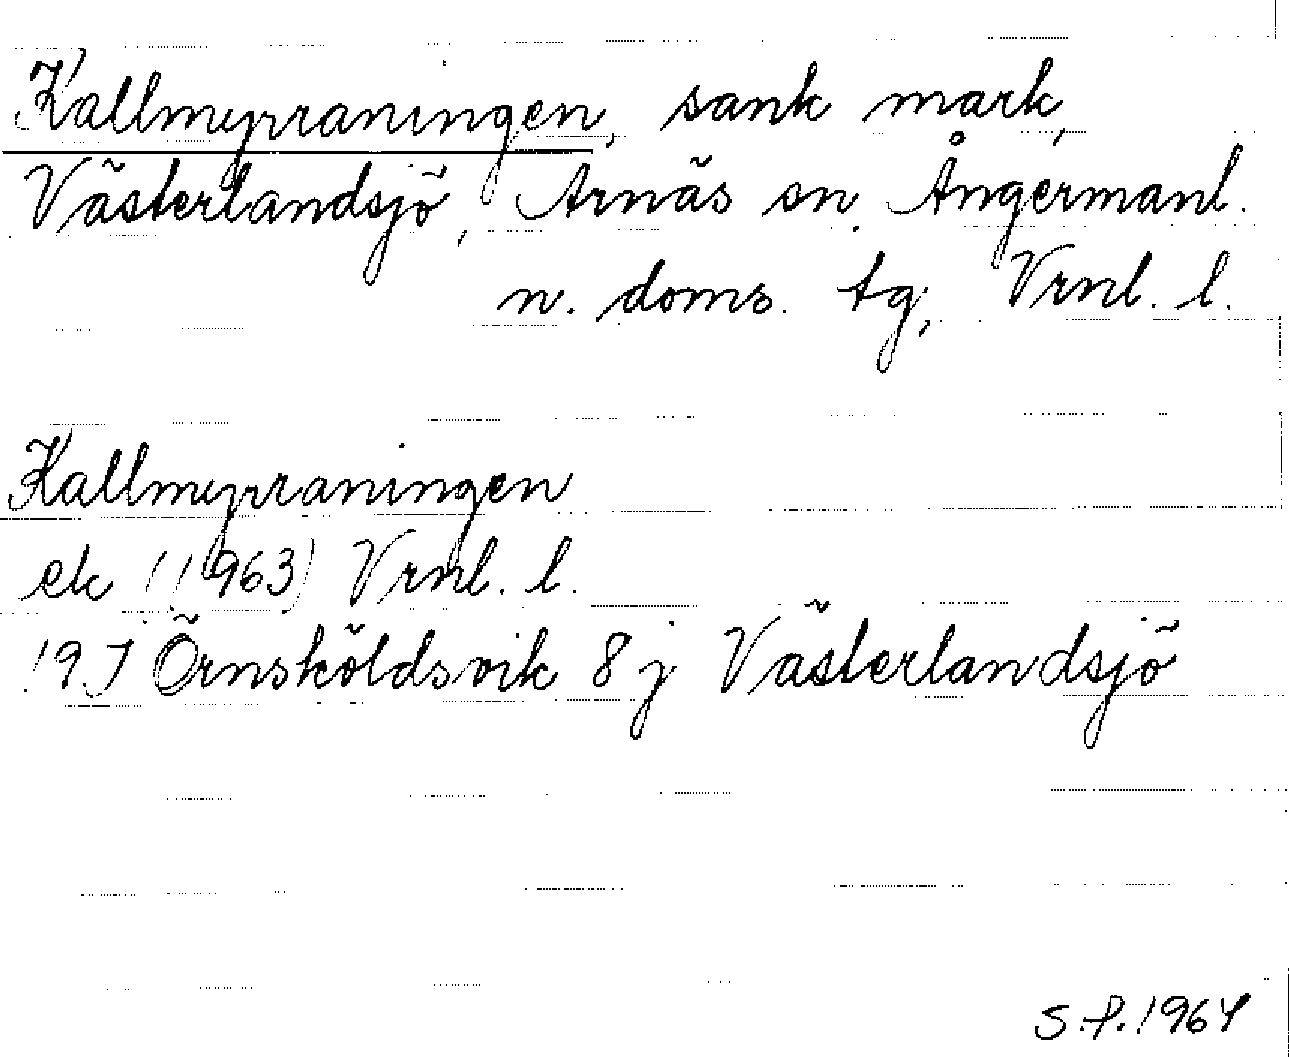 Kallmyrraningen, sank mark,
Västerlandsjö, Arnäs sn, Ångermanl.
n. doms. tg, Vrnl. l.
Kallmyrraningen
ek (1963) Vrnl. l.
19J Örnsköldsvik 8 j Västerlandsjö
S.P. 1964